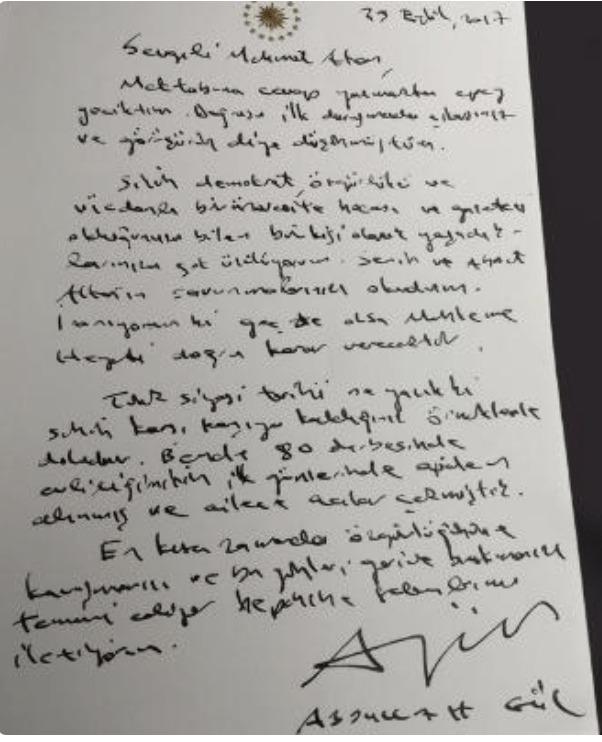 29 Eylül, 2017
Sevgili Mehmet Altan,
Mektubuna cevap yazmakta epey
geciktim. Doğrusu ilk duruşmada çıkarsınız
ve görüşürüz diye düşünmüştüm.
Sizin demokrat, özgürlükçü ve
vicdanlı bir üniversite hocası ve gazeteci
olduğunuzu bilen bir kişi olarak yaşadık-
larınıza çok üzülüyorum. Senin ve Ahmet
Altan'ın savunmalarınızı okudum.
İnanıyorum ki geç de olsa Mahkeme
Heyeti doğru karar verecektir.
Türk siyasi tarihi ne yazık ki
sizin karşı karşıya kaldığınız örneklerle
doludur. Bende 80 darbesinde
evliliğimizin ilk günlerinde apılan
alınmış ve ailece acılar çekmiştik.
En kısa zamanda özgürlüğünüze
kavuşmanızı ve bu geride bırakmanızı
temenni ediyor hepinize selamlarımı
iletiyorum.
Abdullah Gül